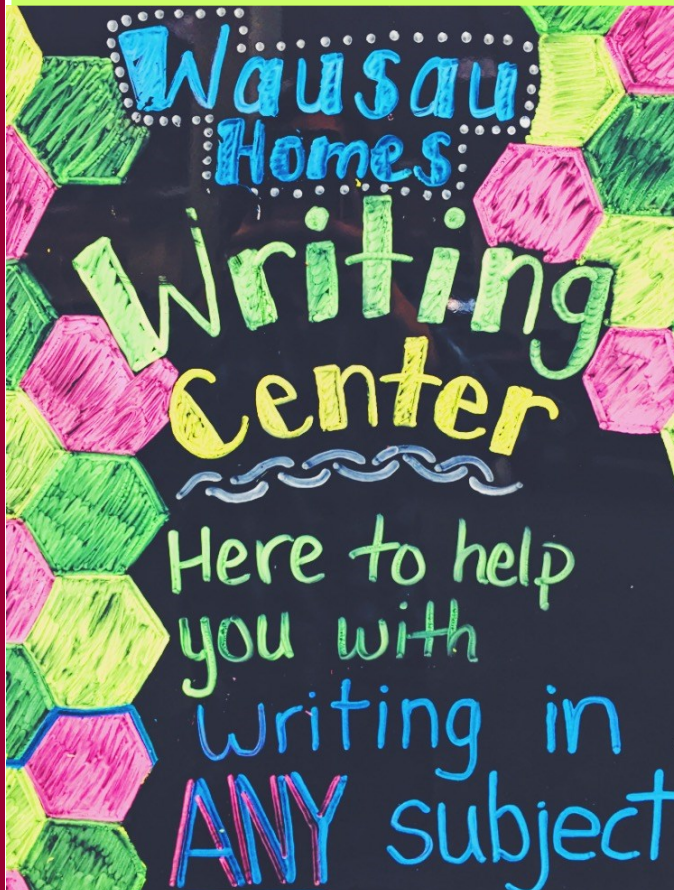 Wausau
Homes
Writing
Center
Here to help
you with
writing in
ANY subject